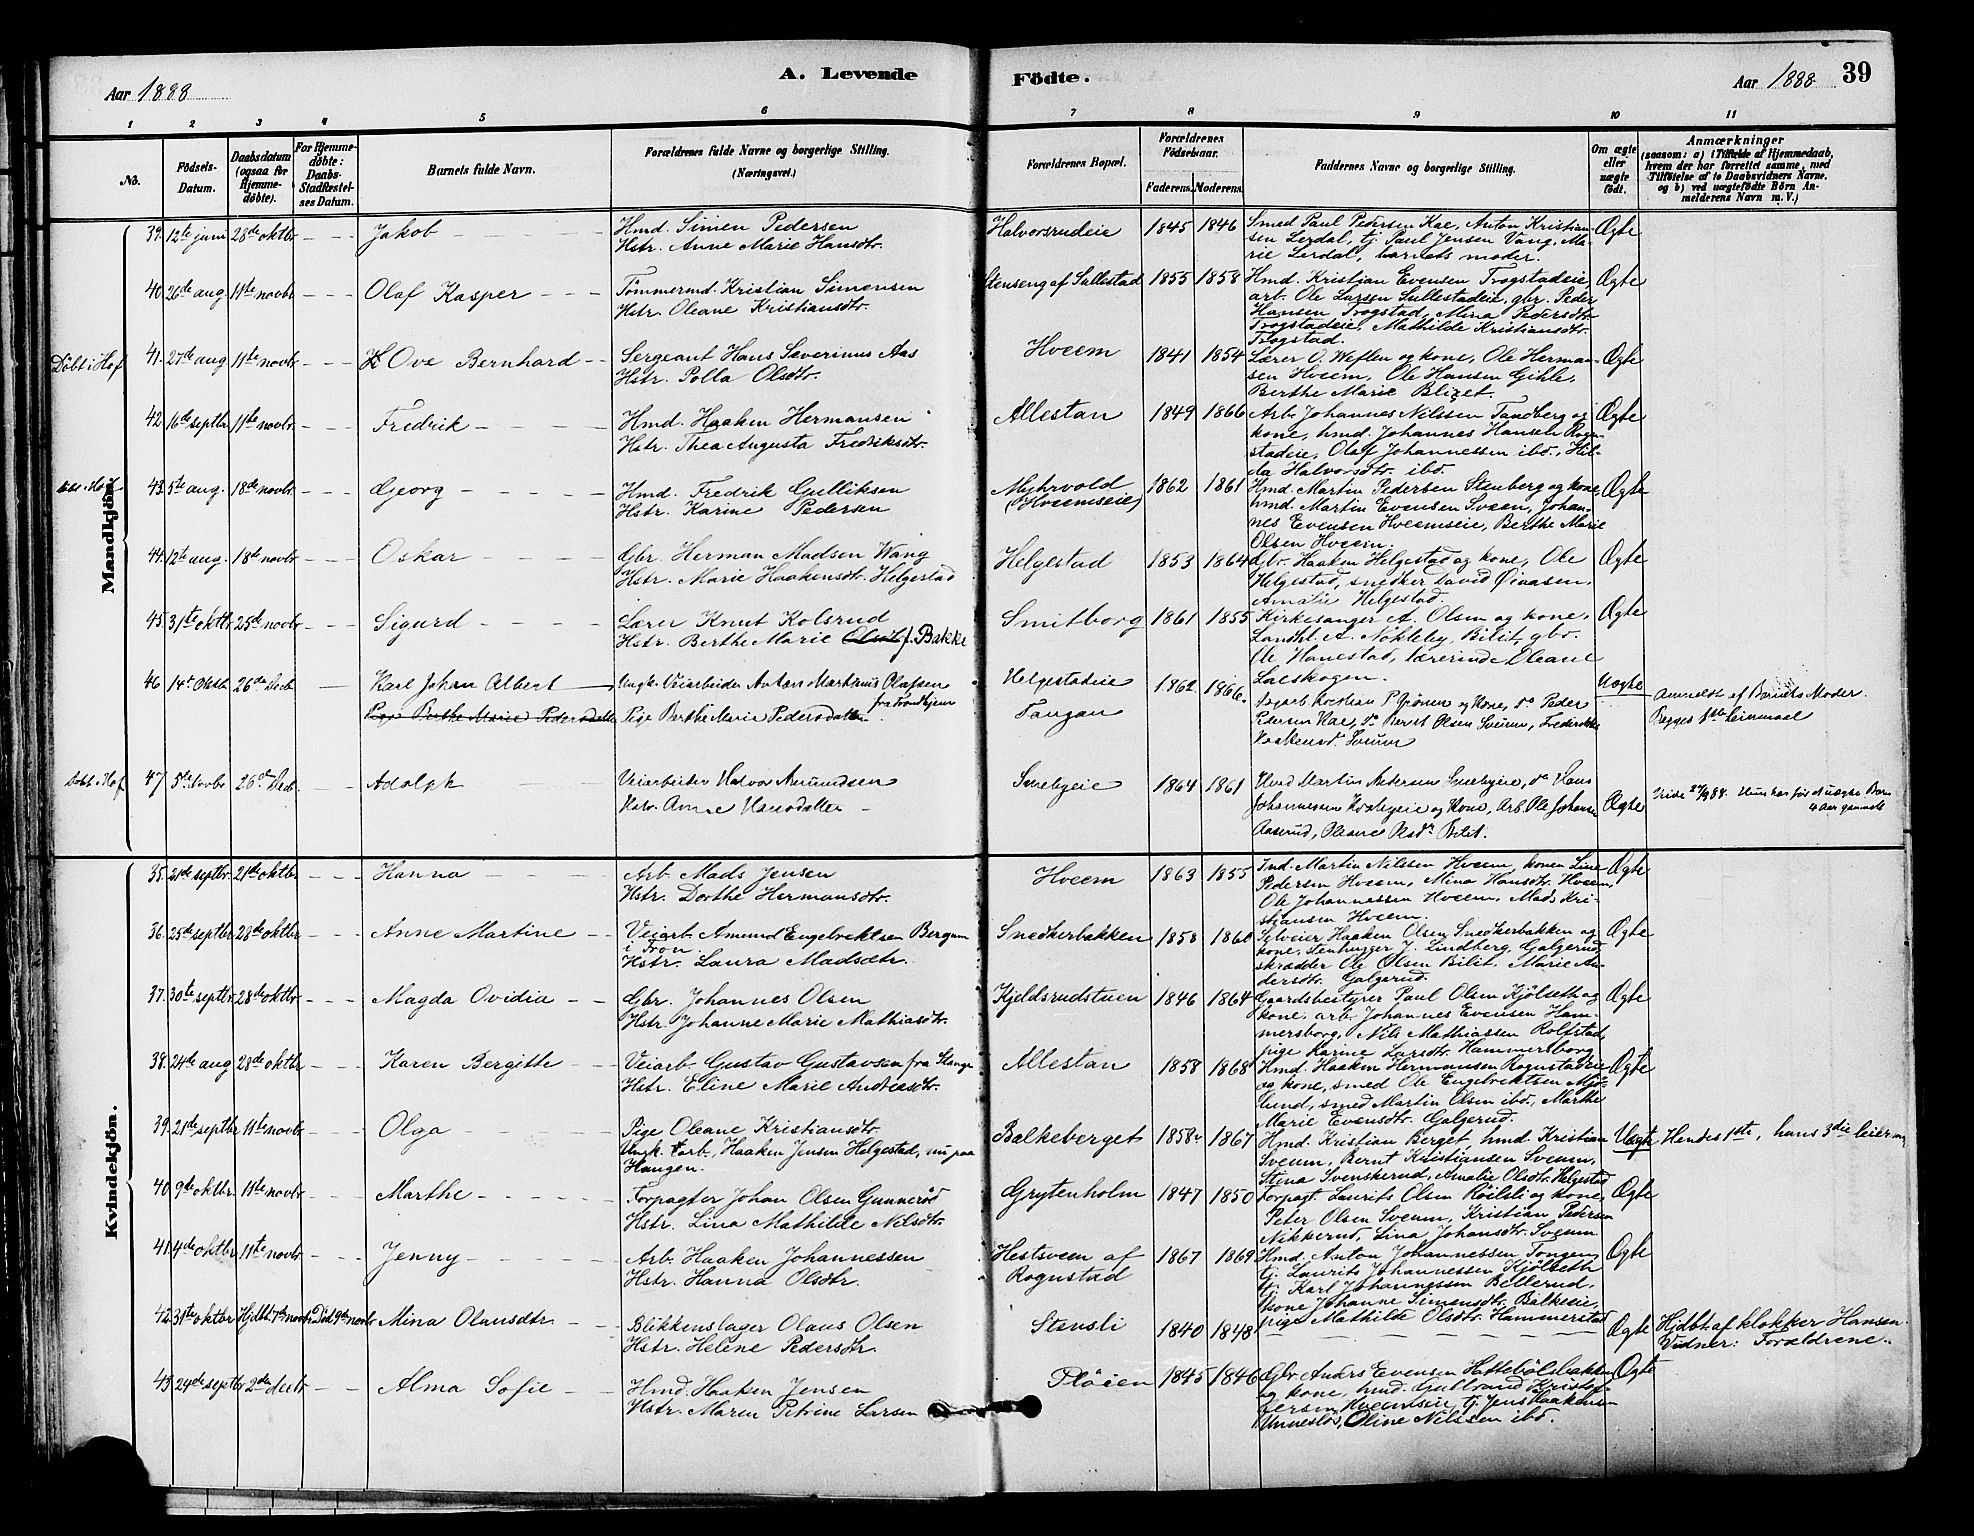 A. Levende Födte.
Aar 1888
Aar 1888 39
1 2 3 4 5 6 7 8 9 10 11
No.
Födsels-Datum.
Daabsdatum (ogsaa for Hjemmedöbte).
For Hjemmedöbte: Daabs-Stadfæstelses Datum.
Barnets fulde Navn.
Forældrenes fulde Navne og borgerlige Stilling.
(Næringsvei.)
Forældrenes Bopæl.
Forældrenes Födselsaar.
Faderens. Moderens.
Faddernes Navne og borgerlige Stilling.
Om ægte eller uægte födt.
Anmærkninger
(saasom: a) i Tilfælde af Hjemmedaab, hvem der har forrettet samme, med Tilföielse af to Daabsvidners Navne, og b) ved uægtefödte Börn Anmelderens Navn m. V.)
Mandkjön.
39. 12te juni 28de oktbr. — — Jakob — — — Hmd. Simen Pedersen
Hstr. Anne Marie Hansdtr. Halvorsrudeie 1845 1846 Smed Paul Pedersen Kae, Anton Kristian-
sen Lerdal, tj. Paul Jensen Vang, Ma-
rie Lerdal, barnets moder. Ægte
40 26de aug. 11te novbr. — — Olaf Kasper — — Tømmermd. Kristian Simensen
Hstr. Oleane Kristiansdtr. Stenseng af Sullestad 1855 1858 Hmd. Kristian Evensen Trogstadeie,
arb. Ole Larsen Sullestadeie, gbr. Peder
Hansen Trogstad, Mina Pedersdtr.
Trogstadeie, Mathilde Kristiansdtr.
Trogstad. Ægte
Döbt i Hof 41. 27de aug 11te novbr. — — Ove Bernhard — — Sergeant Hans Severinus Aas
Hstr. Polla Olsdtr. Hveem 1841 1854 Lærer O. Weflen og kone, Ole Herman-
sen Hveem, Ole Hansen Gihle,
Berthe Marie Blizet. Ægte
42 16de septbr. 11te novbr. — — Fredrik — — — Hmd. Haaken Hermansen
Hstr. Thea Augusta Fredriksdtr. Allestan 1849 1866 Arb. Johannes Nilssen Tandberg og
kone, hmd. Johannes Hansen Rogn-
stadeie, Olaf Johannessen ibd., Hil-
da Halvorsdtr. ibd. Ægte
Döbt i Hof 43. 5te aug. 18de novbr. — — Georg — — — Hmd. Fredrik Gulliksen
Hstr. Karine Pedersen Myhrvold
(Hveemseie) 1862 1861 Hmd. Martin Pedersen Stenberg og kone,
hmd. Martin Evensen Sveen, Johan-
nes Evensen Hveemseie, Berthe Marie
Olsen Hveem. Ægte
44. 12te aug. 18de novbr. — — Oskar — — — Gbr. Herman Madsen Wang
Hstr. Marie Haakensdtr. Helgestad Helgestad 1853 1864 Gbr. Haaken Helgestad og kone, Ole
Helgestad, snedker David
Amalie Helgestad. Ægte
45. 31te oktbr. 25de novbr. — — Sigurd — — — Lærer Knut Kolsrud
Hstr. Berthe Marie f. Bakke Smitborg 1861 1855 Kirkesanger A. Olsen og kone,
Landhl. A. Nökleby, Bilit, gbr.
Ole Hanestad, lærerinde Oleane
Laeskogen. Ægte
46 14de Oktbr 26de Decb — Karl Johan Albert — Ungk. Veiarbeider Anton Martinus Olafsen
fra Trondhjem
Pige Berthe Marie Pedersdatter
Pige Berthe Marie Pedersdatter. Helgestadeie
Tangan 1862 1866. Kristian P. Grönn og kone, do Peder
Pedersen Kae, do Bernt Olsen Sveum, Frederikke
Haakensd. Sveum Uægte Anmeldt af Barnets Moder.
Begges 1ste Leiermaal
Döbt i Hof 47 5te Novbr 26de Decb — Adolph — — Veiarbeider Halvor Amundsen
Hstr. Anne Hansdatter Sveebyeie 1864 1861 Hmd Martin Andersen Sveebyeie, do Hans
Johannessen og Kone, Arb. Ole Johansen
Aaserud, Oleane Olsdr Bilit. Ægte Viede 27/9 88. Hun har før et uægte Barn
4 Aar gammelt
Kvindekjön.
35. 21de septbr. 21de oktbr. — — Hanna — — Arb. Mads Jensen
Hstr. Dorthe Hermansdtr. Hveem 1863 1855 Ind. Martin Nilssen Hveem, konen Line
Pedersen Hveem, Mina Hansdtr. Hveem,
Ole Johannessen Hveem, Mads Kri-
stiansen Hveem. Ægte
36. 25de septbr 28de oktbr — — Anne Martine — — Veiarb. Amund Engebrektsen Bergum
i Tron
Hstr. Laura Madsdtr. Snedkerbakken 1858 1860 Sylveier Haaken Olsen Snedkerbakken og
kone, stenhugger J. Lindberg, Galgerud,
skrædder Ole Olsen Bilit, Marie An-
dersdtr. Galgerud. Ægte
37. 30te septbr. 28de oktbr. — — Magda Ovidia — — Gbr. Johannes Olsen
Hstr. Johanne Marie Mathiasdtr. Kjeldsrudstuen 1846 1864 Gaardsbestyrer Paul Olsen Kjölseth og
kone, arb. Johannes Evensen Ham-
mersborg, Nils Mathiassen Roltstad,
pige Karine Larsdtr. Hammersborg Ægte
38. 24de aug 28de oktbr — — Karen Bergitte — — Veiarb. Gustav Gustavsen fra Stange
Hstr. Eline Marie Andreasdtr. Allestan 1858 1868 Hmd. Haaken Hermansen Rognstadeie
og kone, smed Ole Engebrektsen Mjö-
lund, smed Martin Olsen ibd., Marthe
Marie Evensdtr. Galgerud. Ægte
39. 21de septbr 11te novbr. — — Olga — — — Pige Oleane Kristiansdtr.
Ungk. arb. Haaken Jensen Helgestad, nu paa
Haugen. Balkeberget 1858 1867 Hmd. Kristian Berget, hmd. Kristian
Sveum, Bernt Kristiansen Sveum,
Stena Svenskerud, Amalie Olsdtr. Helgestad Uægte Hendes 1ste, hans 3die leierm.
40 9de oktbr. 11te novbr. — — Marthe — — — Forpagter Johan Olsen Gunneröd
Hstr. Lina Mathilde Nilsdtr. Grytenholm 1847 1850 Forpagt. Laurits Olsen Röisli og kone,
Peter Olsen Sveum, Kristian Pedersen
Nikkerud, Lina Johansdtr. Sveum Ægte
41. 4de oktbr. 11te novbr. — — Jenny — — — Arb. Haaken Johannessen
Hstr. Hanna Olsdtr. Hestsveen af
Rognstad 1867 1869 Hmd. Anton Johannessen Tongen,
tj. Laurits Johannessen Kjölseth
tj. Karl Johannessen Bellerud,
kone Johanne Simensdtr. Balkeeie,
pige Mathilde Olsdtr. Hammerstad Ægte
42. 31te oktbr Hjdbt. 7de novbr Död 9de novbr Mina Olausdtr. — Blikkenslager Olaus Olsen
Hstr. Helene Pedersdtr. Stensli 1840 1848 — — — — Ægte Hjdbt. af klokker Hansen.
Vidner: Forældrene.
43. 24de septbr 2den decbr. — — Alma Sofie — — Hmd. Haaken Jensen
Hstr. Maren Petrine Larsen Plöien 1845 1846 Gbr. Anders Evensen
og kone, hmd. Gulbrand Kristof-
fersen Hveemseie, tj. Jens Haakensen
Oline Nilssen ibd. Ægte